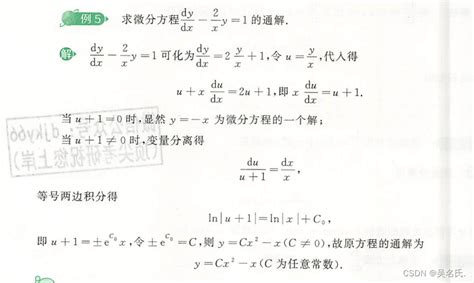 例5 求微分方程dy/dx − 2/x y = 1 的通解.
解 dy/dx − 2/x y = 1 可化为 dy/dx = 2 y/x + 1, 令 u = y/x, 代入得
u + x du/dx = 2u + 1, 即 x du/dx = u + 1.
当 u + 1 = 0 时, 显然 y = −x 为微分方程的一个解;
当 u + 1 ≠ 0 时, 变量分离得
du/(u + 1) = dx/x,
等号两边积分得
ln|u + 1| = ln|x| + C₀,
即 u + 1 = ±e^{C₀} x, 令 ±e^{C₀} = C, 则 y = Cx² − x (C ≠ 0), 故原方程的通解为
y = Cx² − x (C 为任意常数).
djky66
(顶尖考研祝您上岸)
CSDN @吴名氏.